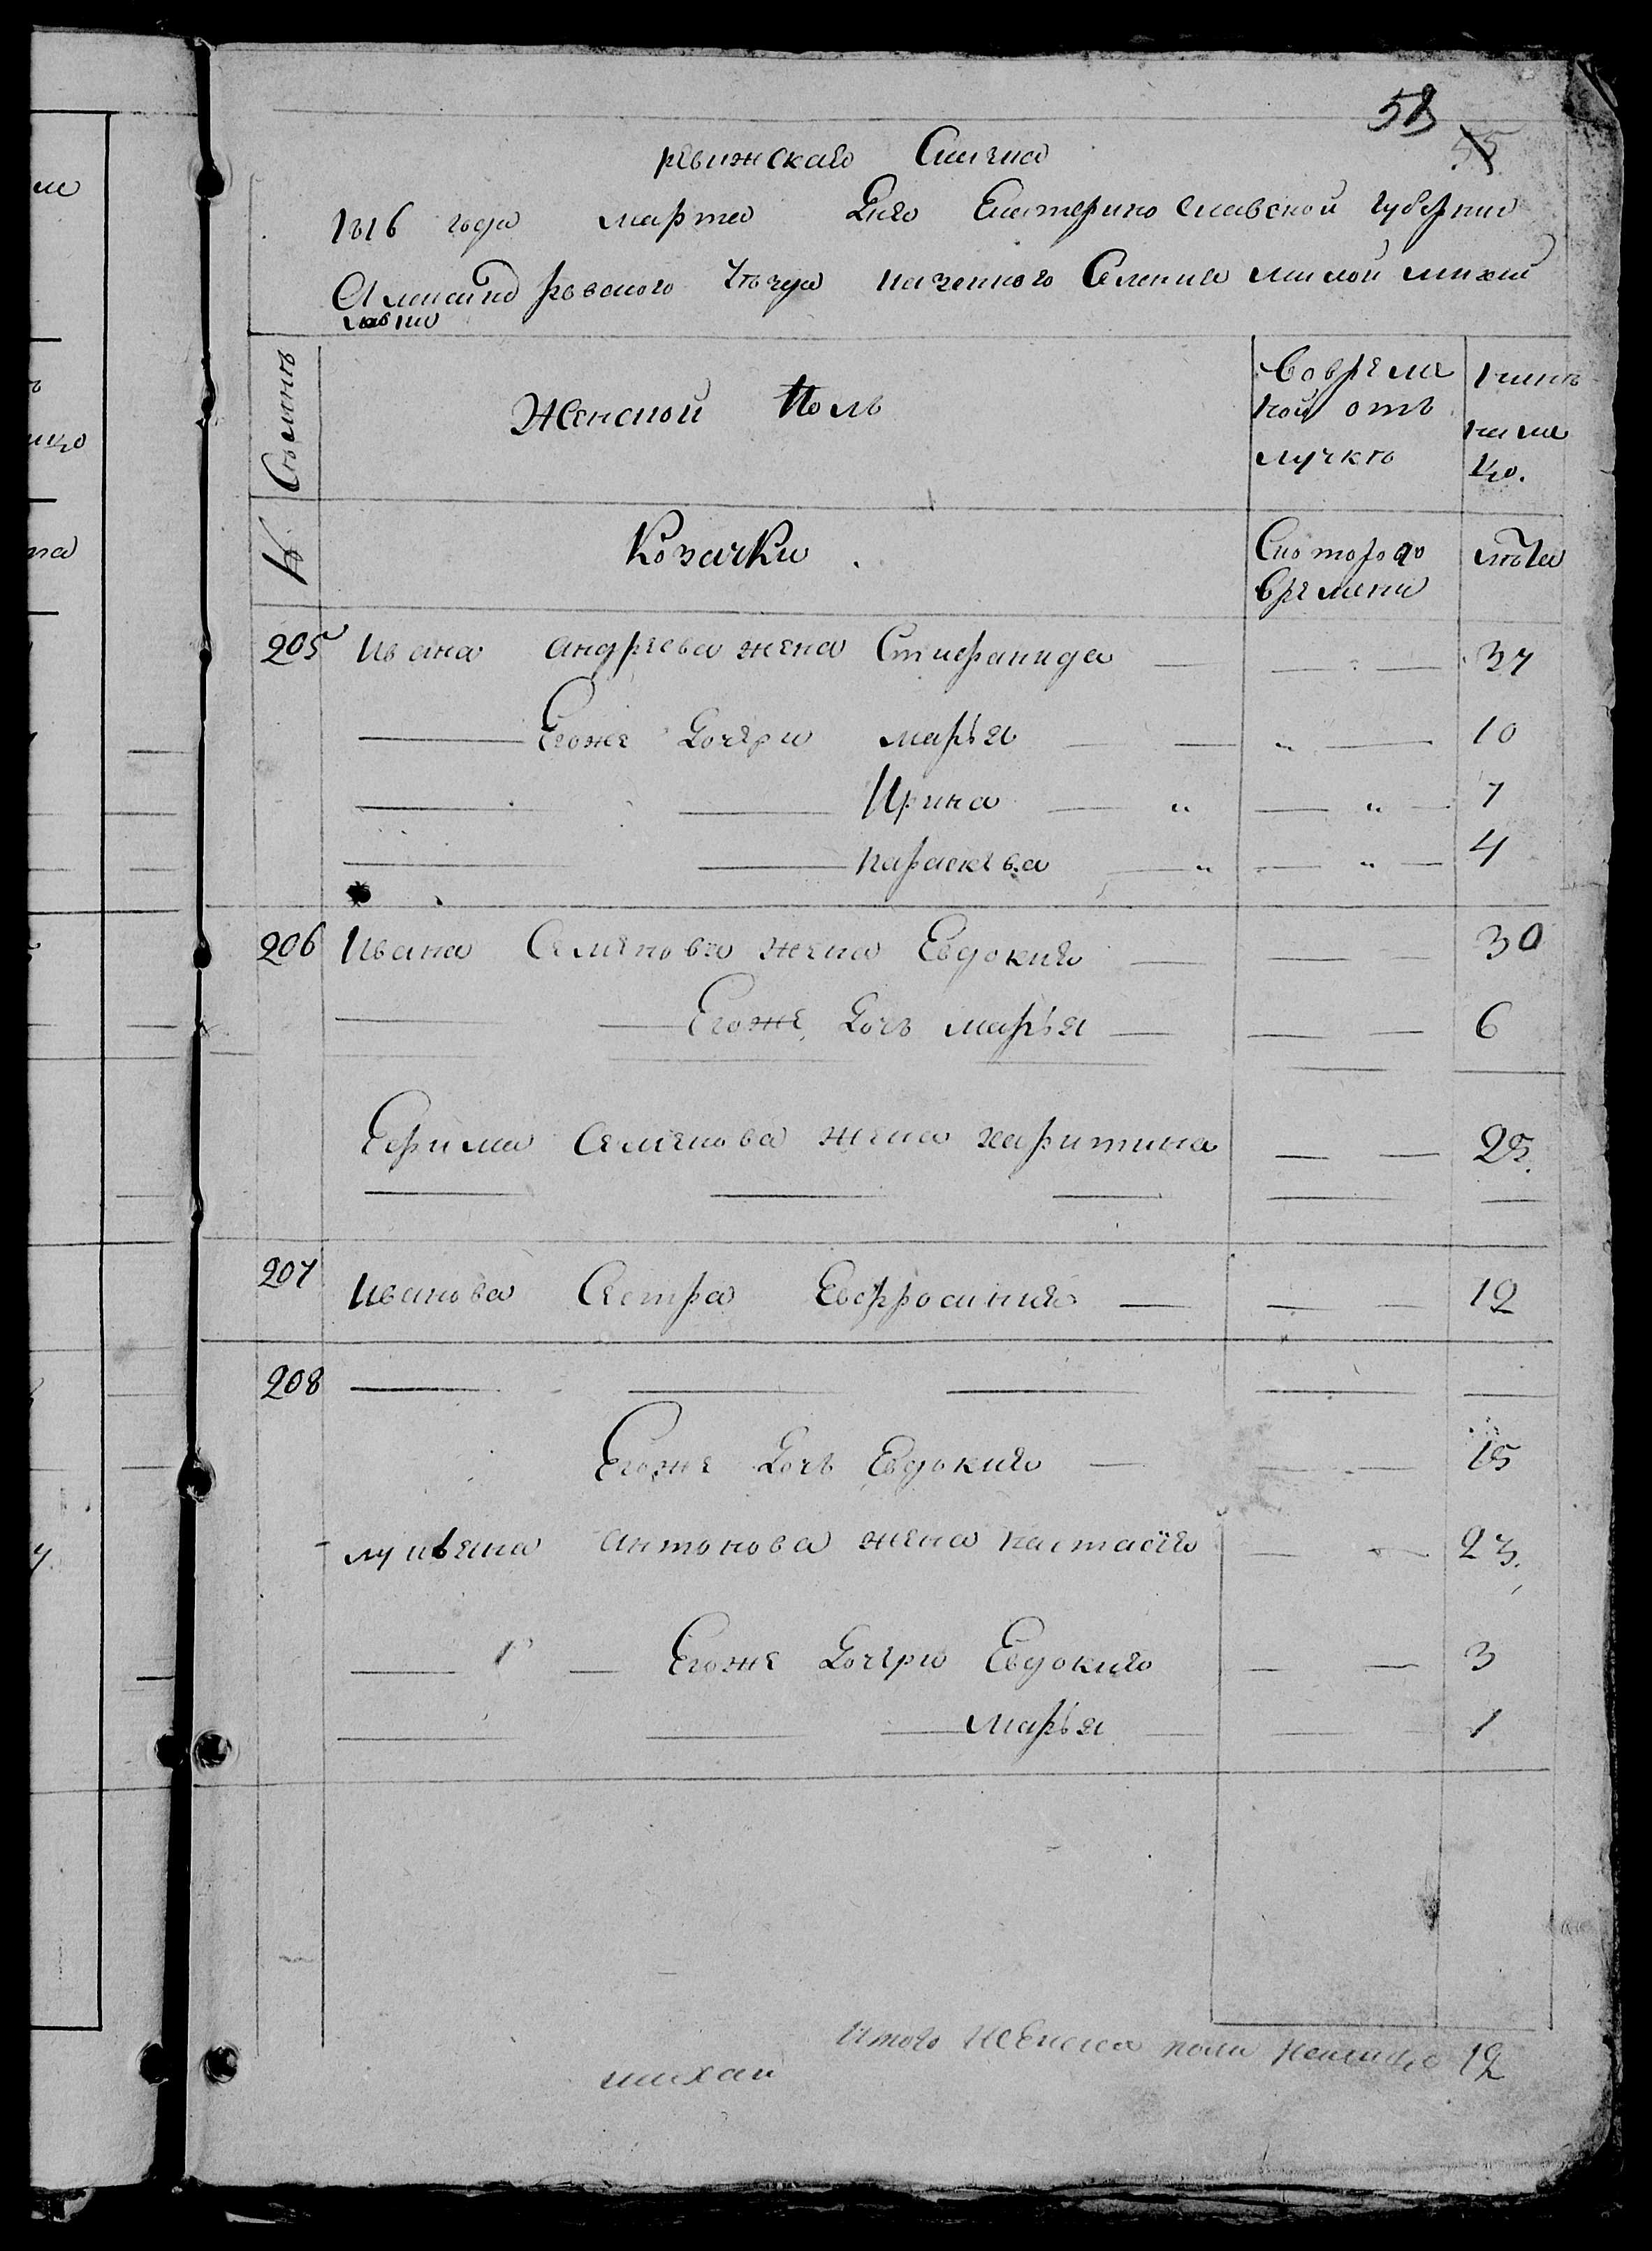 58
55
ревижская Сказка
1816 года марта Дня Екатерино славской губернии
Александ ровского уѣзда казенного Селения малой михай
ловки
Семьиъ
Женской Полъ
Во време
ной отъ
лучкѣ
нынѣ
на ли
цо.
№
Козачки.
Скоторого
времени
лѣта
205 Ивана андреева жена Стиефанида 37
Егоже Дочери марья 10
Ирина 7
параскева 4
206 Ивана Семенова жена Евдокия 30
Егоже Дочь марья 6
Ефима Семенова жена харитина 25.
207 Иванова Сестра Евфросиния 12
208
Егоже Дочь Евдокия 15
лукьяна антонова жена настасия 23.
Егоже Дочери Евдокия 3
марья 1
Итого женска пола налицо 12
михай